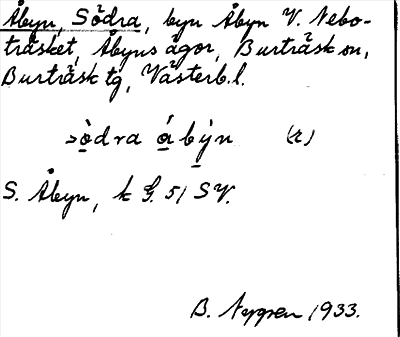 Åbyn, Södra, byn Åbyn V. Nebo-
träsket, Åbyns ägor, Burträsk sn,
Burträsk tg, Västerb. l.
sòdra ábẏn (r)
S. Åbyn, k G. 51 SV.
B. Nygren 1933.